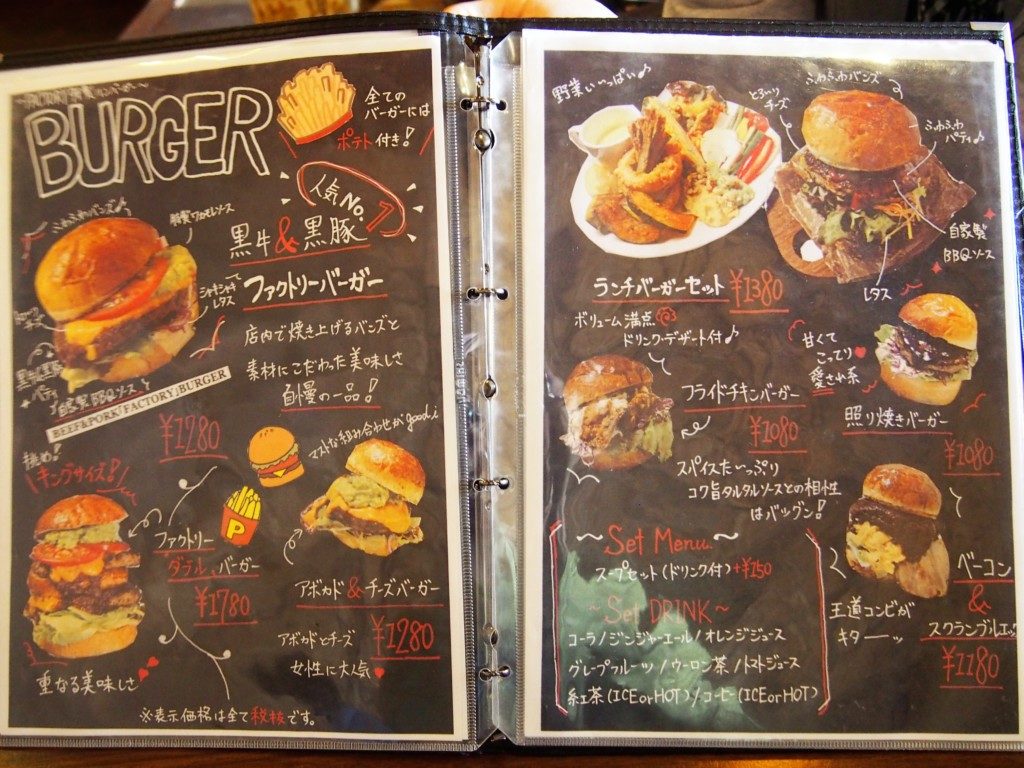 BURGER
全ての
バーガーには
ポテト付き!
人気No.1
黒牛&黒豚
ファクトリーバーガー
ふわふわバンズ♪
特製ワカモレソース
シャキシャキ
レタス
チーズ
自家製BBQソース
BEEF&PORK FACTORY BURGER
¥1280
店内で焼き上げるバンズと
素材にこだわった美味しさ
自慢の一品!
挑め!
キングサイズ!
ファクトリー
ダブルバーガー
¥1780
重なる美味しさ
P
マストな組み合わせがgood!
アボカド&チーズバーガー
アボカドとチーズ
女性に大人気
¥1280
※表示価格は全て税抜です。
野菜いっぱい♪
ふわふわバンズ
とろ〜り
チーズ
ふわふわ
パティ♪
自家製
BBQソース
レタス
ランチバーガーセット ¥1380
ボリューム満点
ドリンク・デザート付♪
甘くて
こってり
愛され系
フライドチキンバーガー
¥1080
照り焼きバーガー
¥1080
スパイスたっぷり
コク旨タルタルソースとの相性
はバツグン!
〜Set Menu〜
スープセット(ドリンク付)+¥150
〜Set DRINK〜
コーラ/ジンジャーエール/オレンジジュース
グレープフルーツ/ウーロン茶/トマトジュース
紅茶(ICEorHOT)/コーヒー(ICEorHOT)
王道コンビが
キターッ
ベーコン
&
スクランブルエッグ
¥1180